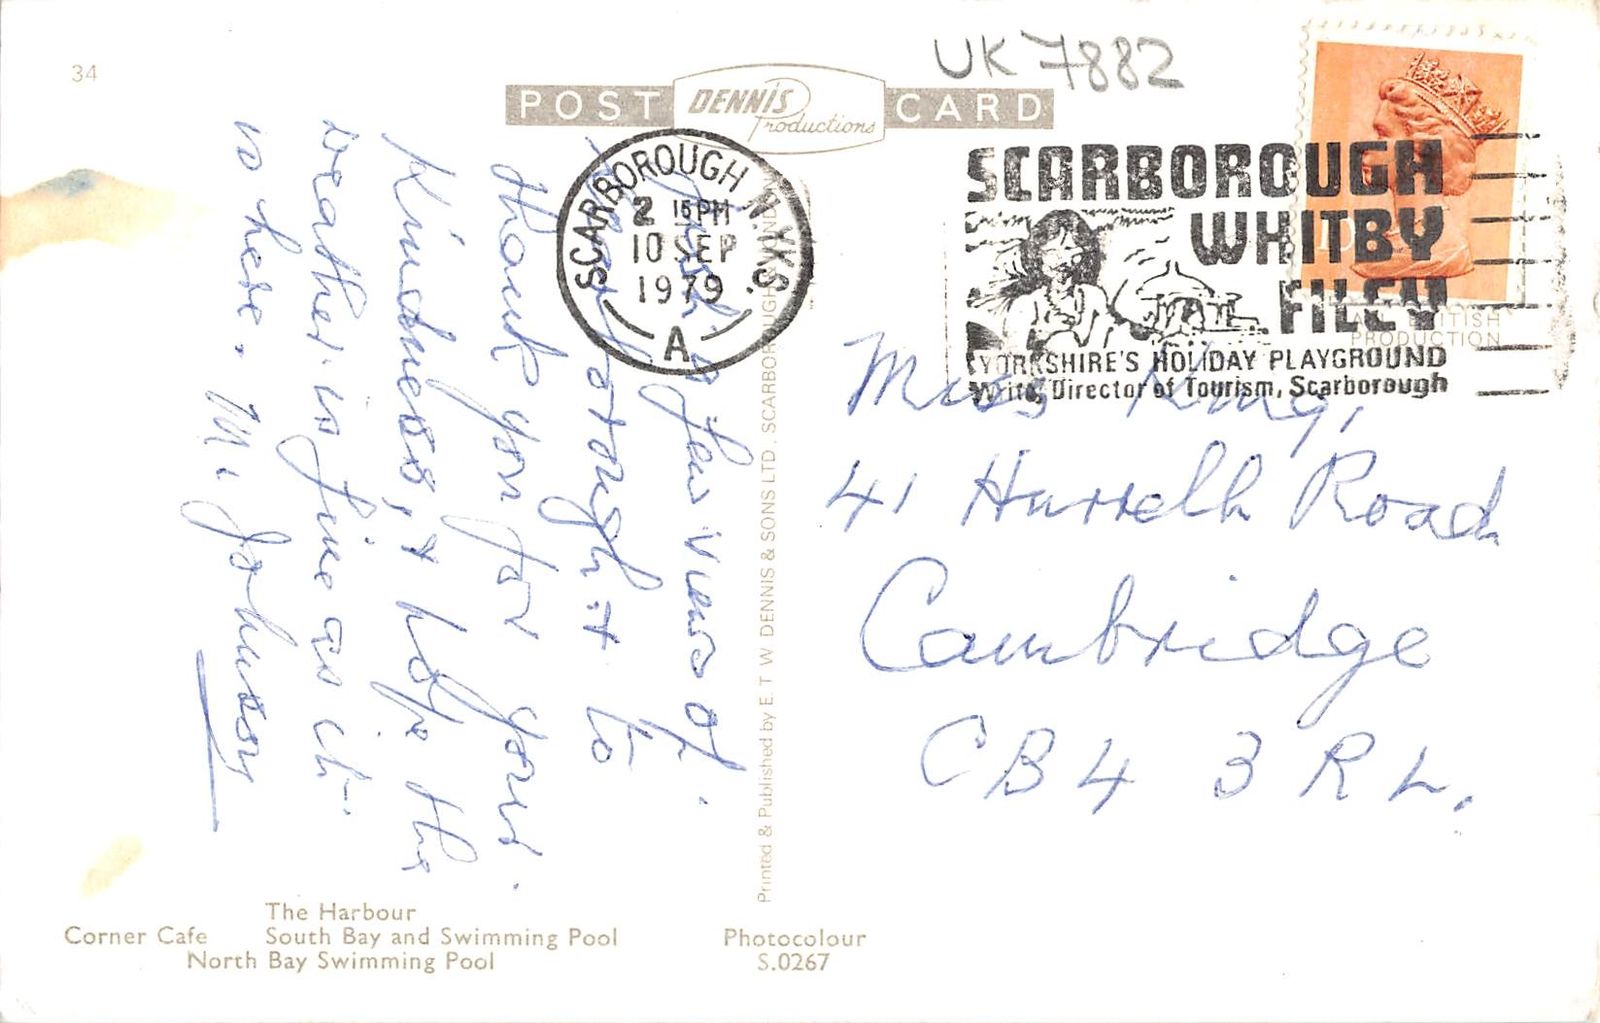 34
UK 7882
POST DENNIS Productions CARD
SCARBOROUGH N. YKS.
2 15 PM
10 SEP
1979
A
SCARBOROUGH
WHITBY
FILEY
YORKSHIRE'S HOLIDAY PLAYGROUND
Write, Director of Tourism, Scarborough
ALL BRITISH
PRODUCTION
Just a few views of
Scarborough. & to
thank you for your
Kindness, & hope the
weather is fine as it
is here. M. Johnson
Miss King,
41 Hurrell Road
Cambridge
CB4 3RL.
Printed & Published by E. T W DENNIS & SONS LTD. SCARBOROUGH
The Harbour
Corner Cafe South Bay and Swimming Pool
North Bay Swimming Pool
Photocolour
S.0267